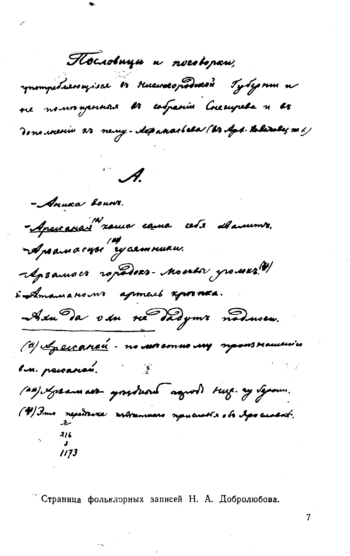 Пословицы и поговорки,
употребляющіяся въ Нижегородской Губерніи и
не помѣщенныя въ собраніи Снегирева и въ
дополненіи къ нему Афанасьева (въ Арх.
А.
- Аника воинъ.
- Аржаная (*) каша сама себя хвалитъ.
- Арзамасцы (**) гусятники.
- Арзамасъ городокъ - Москвы уголокъ (#)
- Атаманомъ артель крѣпка.
- Ахи да охи не дадутъ подмоги.
(*) Аржаной - по мѣстному произношенію
вм. ржаной.
(**) Арзамасъ уѣздный городъ Ниж. губерніи.
(#) Это передѣлка
216
3
1173
Страница фольклорных записей Н. А. Добролюбова.
7